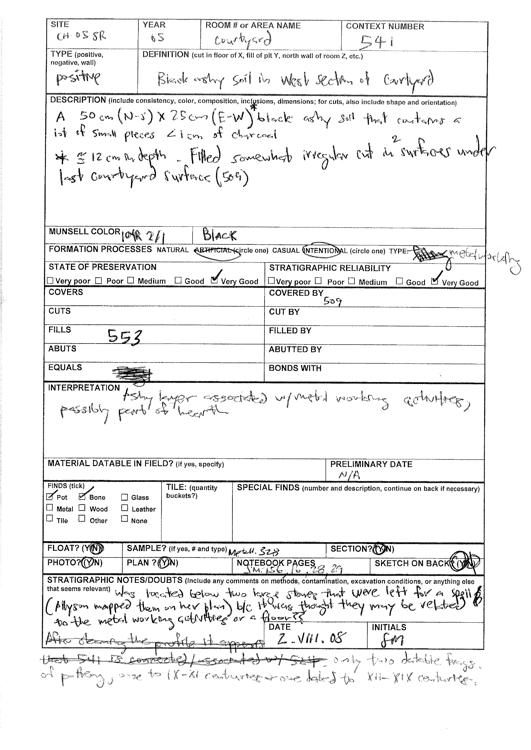 SITE YEAR ROOM # or AREA NAME CONTEXT NUMBER
CH 05 SR 05 Courtyard 541
TYPE (positive, negative, wall) DEFINITION (cut in floor of X, fill of pit Y, north wall of room Z, etc.)
positive Black ashy soil in West section of Courtyard
DESCRIPTION (include consistency, color, composition, inclusions, dimensions; for cuts, also include shape and orientation)
A 50 cm (N-S) X 25 cm (E-W)* black ashy soil that contains a
lot of small pieces <1 cm of charcoal
* ≅ 12 cm in depth - Filled somewhat irregular cut in 2 surfaces under
last courtyard surface (509)
MUNSELL COLOR 10YR 2/1 Black
FORMATION PROCESSES NATURAL ARTIFICIAL (circle one) CASUAL INTENTIONAL (circle one) TYPE: metalworking
STATE OF PRESERVATION STRATIGRAPHIC RELIABILITY
☐ Very poor ☐ Poor ☐ Medium ☐ Good ☑ Very Good ☐ Very poor ☐ Poor ☐ Medium ☐ Good ☑ Very Good
COVERS COVERED BY
509
CUTS CUT BY
FILLS 553 FILLED BY
ABUTS ABUTTED BY
EQUALS BONDS WITH
INTERPRETATION
Ashy layer associated w/metal working activities,
possibly part of hearth
MATERIAL DATABLE IN FIELD? (if yes, specify) PRELIMINARY DATE
N/A
FINDS (tick) TILE: (quantity buckets?) SPECIAL FINDS (number and description, continue on back if necessary)
☑ Pot ☑ Bone ☐ Glass
☐ Metal ☐ Wood ☐ Leather
☐ Tile ☐ Other ☐ None
FLOAT? (Y/N) SAMPLE? (if yes, # and type) Metall. 328 SECTION? (Y/N)
PHOTO? (Y/N) PLAN? (Y/N) NOTEBOOK PAGES SKETCH ON BACK? (Y/N)
STRATIGRAPHIC NOTES/DOUBTS (Include any comments on methods, contamination, excavation conditions, or anything else that seems relevant)
Was located below two large stones that were left for a spell
(Allyson mapped them on her plan) b/c it was thought they may be related
to the metal working activities or a floor??
DATE INITIALS
2.VIII.05 SM
After cleaning the profile it appears
that 541 is connected/associated w/ 524 - only two datable frags.
of pottery, one to IX-XI centuries + one dated to XII-XIX centuries.